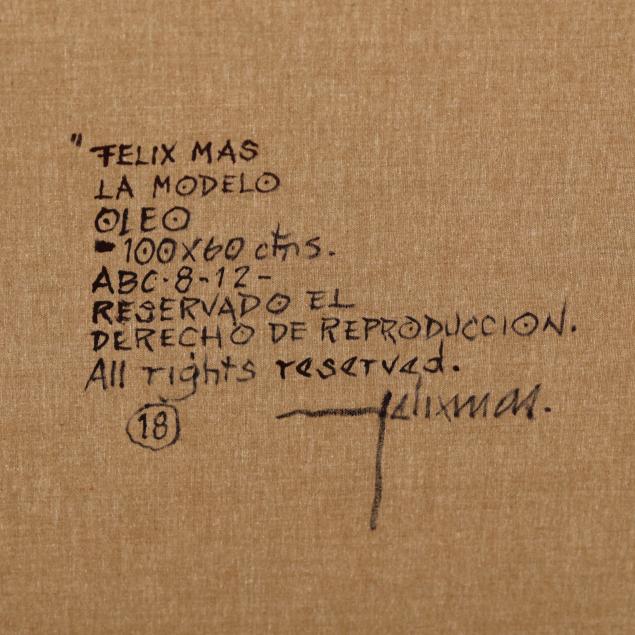 " FELIX MAS
LA MODELO
OLEO
-100X60 cms.
ABC-8-12-
RESERVADO EL
DERECHO DE REPRODUCCION.
All rights reserved.
felixmas.
18